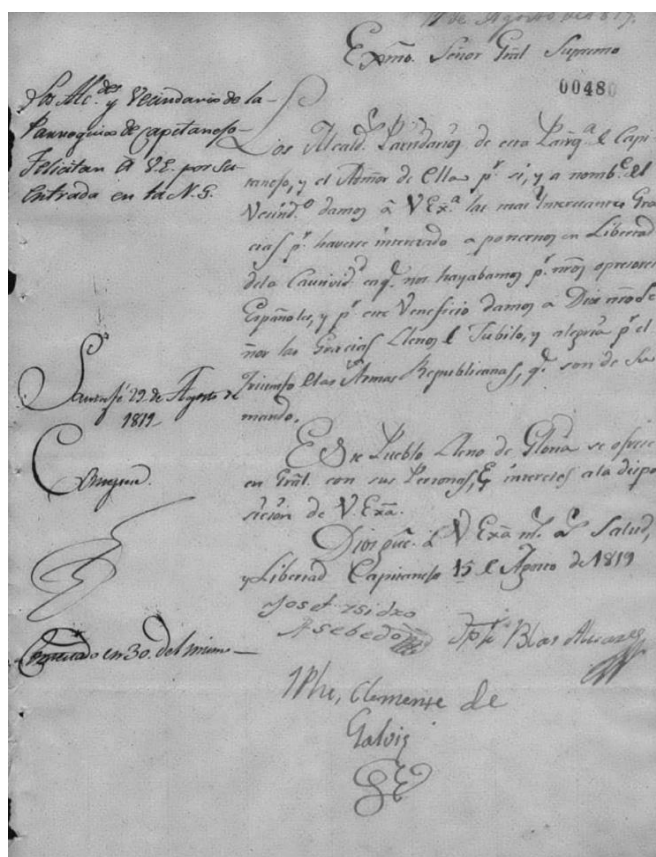 15 de Agosto de 1819.
Exmo. Señor Gral Supremo
00480
Los Alc.des y Vecindario de la
Parroquia de Capitanejo
Felicitan a V.E. por su
entrada en la N.G.
Los Alcald.s Partidarios de esta Parroq.a el Capi
tanejo, y el Admor de ella p.r si, y a nomb.e del
Vecind.o damos â V Ex.a las mas Gra
cias p.r haverse interezado a ponernos en Libertad
dela Cautivid.d en q.e nos hayabamos p.r nrõs opresores
Españoles, y p.r este Veneficio damos a Dios nrõ Se
ñor las Gracias Llenos de Jubilo, y alegria p.r el
Triunfo de las Armas Republicanas, q.e son de Su
mando.
29 de Agosto de
1819
Este Pueblo lleno de Gloria se ofrece
en Gral. con sus Personas, é intereses ala dispo
sicion de V.Exã.
Dios gue. â V Exã m.s a.s Salud,
y Libertad Capitanejo 15 de Agosto de 1819
Contestado en 30. del mismo
Josef Isidro
Asebedo
Jph Blas Alvarez
Jphe, Clemente de
Galvis